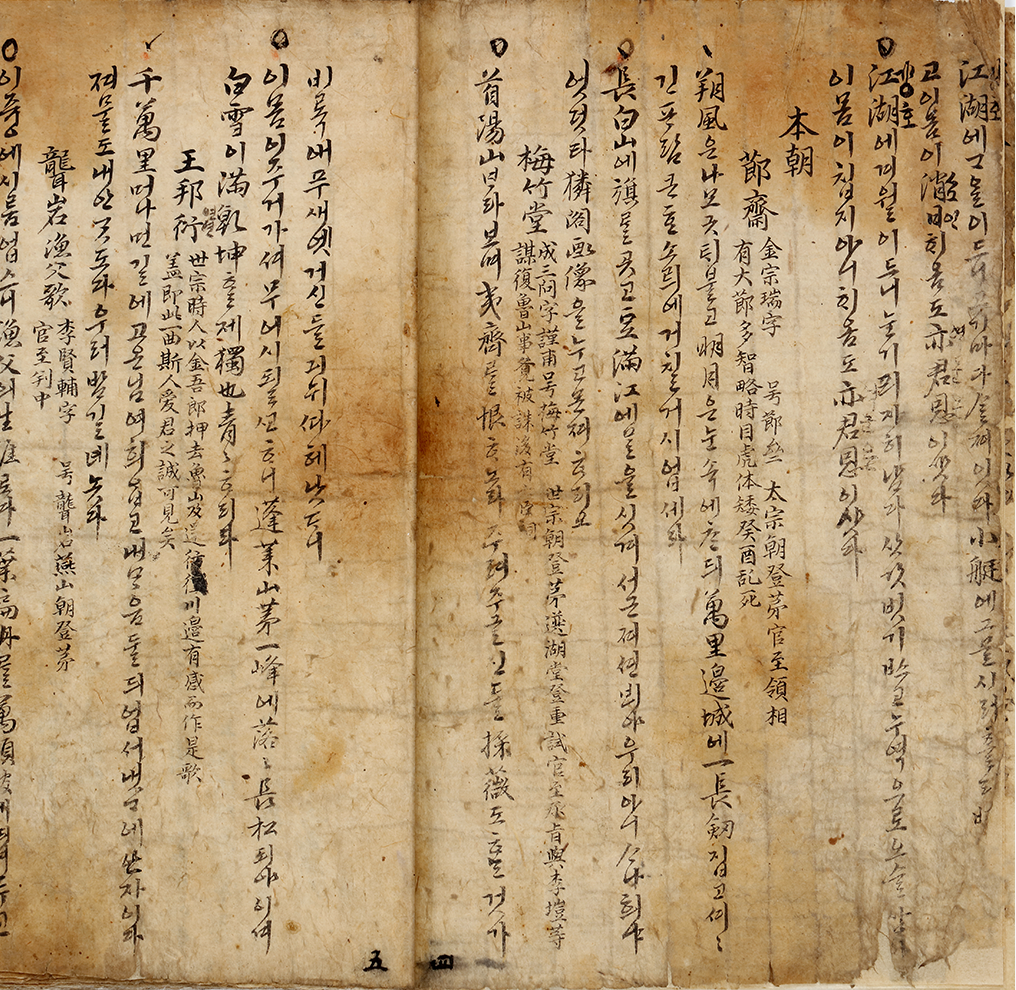 江湖에 ᄀᆞ을이 드니 고기마다 ᄉᆞᆯ져 잇다 小艇에 그물 시러
고 이 몸이 消日ᄒᆡ옴도 亦君恩이샷다
江湖에 겨월이 드니 눈 기픠 자히 남다 삿갓 빗기 ᄡᅳ고 누역으로 오슬 삼
이 몸이 칩지 아니ᄒᆡ옴도 亦君恩이샷다
本朝
節齋 金宗瑞字 号節齋 太宗朝登第官至領相
有大節多智略時目虎体矮癸酉乱死
朔風은 나모 긋ᄐᆡ 불고 明月은 눈 속에 ᄎᆞᆫᄃᆡ 萬里邊城에 一長劒 집고 셔
긴 ᄑᆞ람 큰 ᄒᆞᆫ 소ᄅᆡ에 거칠 거시 업세라
長白山에 旗를 곳고 豆滿江에 ᄆᆞᆯ을 싯겨 서근 져 션ᄇᆡ야 우리 아니 ᄉᆞ나희냐
엇덧타 獜閣畵像을 누고 몬져 ᄒᆞ리오
梅竹堂 成三問字謹甫号梅竹堂 世宗朝登第選湖堂登重試官至承旨與李塏等
謀復魯山事覺被誅後有
首陽山 ᄇᆞ라보며 夷齊를 恨ᄒᆞ노라 주려 주글진들 採薇도 ᄒᆞᄂᆞᆫ 것가
비록애 푸새엣 거신들 긔 뉘 ᄯᅡ헤 낫ᄃᆞ니
이 몸이 주거 가셔 무어시 될고 ᄒᆞ니 蓬萊山第一峰에 落落長松 되야 이셔
白雪이 滿乾坤ᄒᆞᆯ 제 獨也靑靑ᄒᆞ리라
王邦衍 世宗時人以金吾郎押去魯山及還彷徨川邊有感而作是歌
盖即此一西斯人愛君之誠可見矣
千萬里 머나먼 길에 고은 님 여희ᄋᆞᆸ고 내 ᄆᆞᄋᆞᆷ 둘 ᄃᆡ 업서 냇ᄀᆞ에 안자이다
져 믈도 내 안 ᄀᆞᆺᄒᆞ야 우러 밤길 녜놋다
聾岩漁父歌 李賢輔字 号聾岩燕山朝登第
官至判中
이 즁에 시름 업스니 漁父의 生涯로다 一葉扁舟를 萬頃波에 ᄯᅴ워 두고
五 四